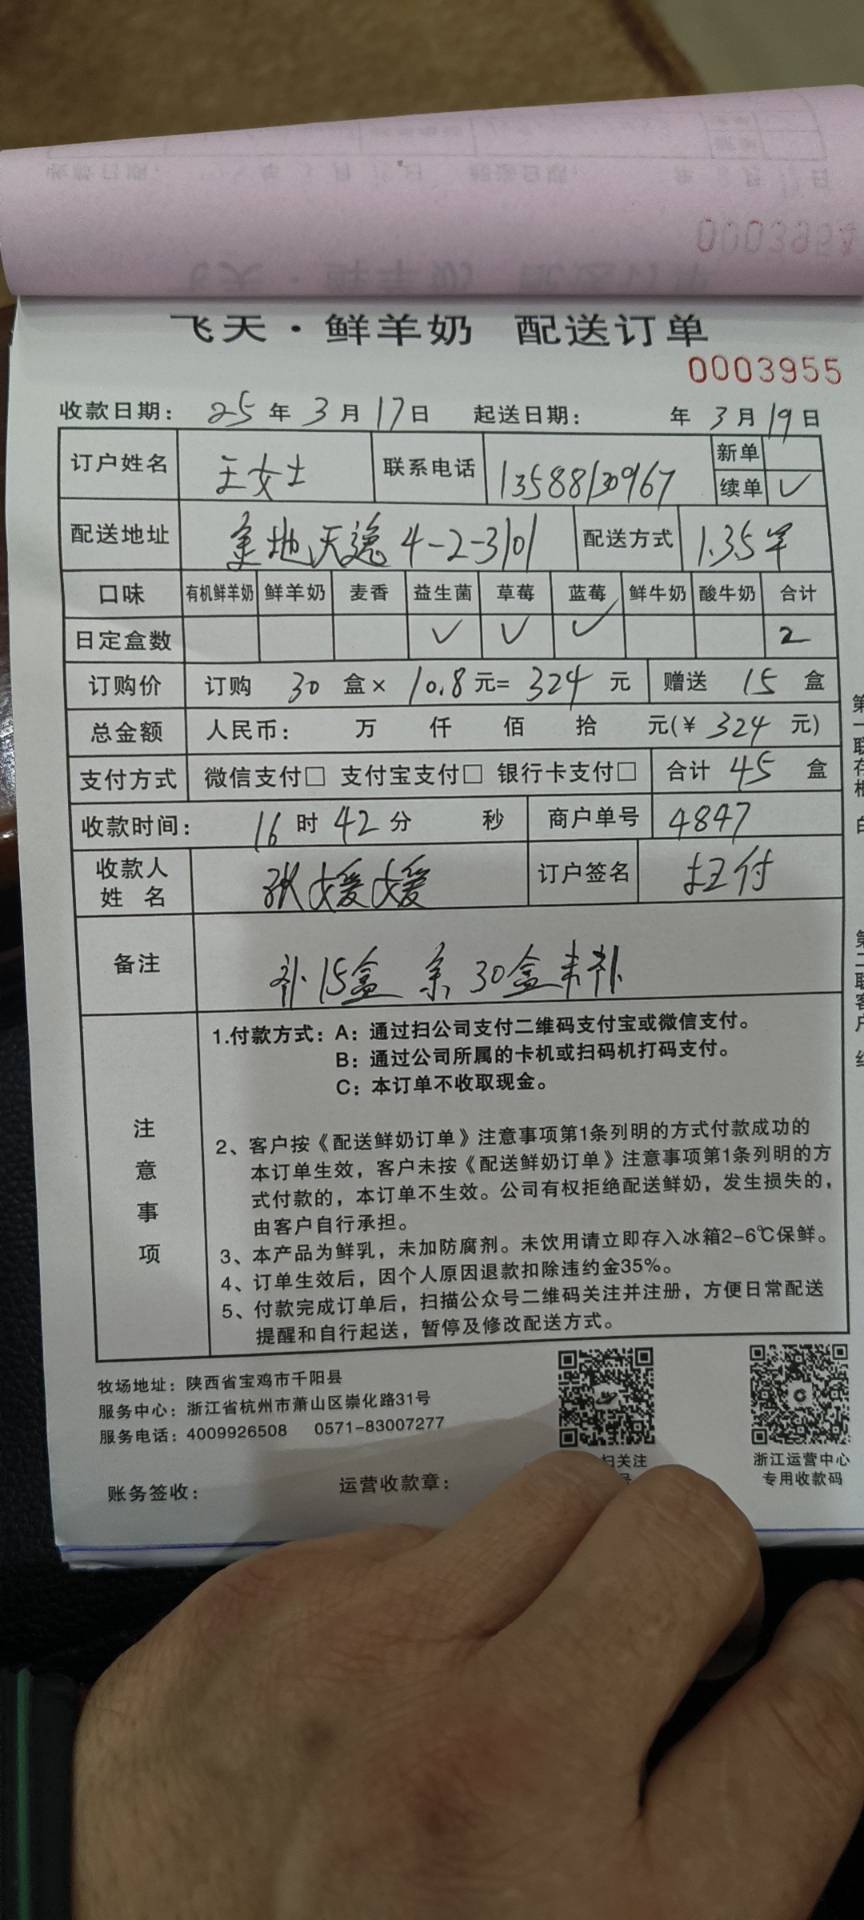 飞天·鲜羊奶 配送订单
0003955
收款日期: 25年3月17日 起送日期: 年3月19日
订户姓名 王女士 联系电话 13588130967 新单
续单 ✓
配送地址 美地天逸4-2-3101 配送方式 1.3.5早
口味 有机鲜羊奶 鲜羊奶 麦香 益生菌 草莓 蓝莓 鲜牛奶 酸牛奶 合计
日定盒数 ✓ ✓ ✓ 2
订购价 订购 30 盒× 10.8元= 324 元 赠送 15 盒
总金额 人民币: 万 仟 佰 拾 元(¥ 324 元)
支付方式 微信支付□ 支付宝支付□ 银行卡支付□ 合计 45 盒
收款时间: 16时42分 秒 商户单号 4847
收款人姓名 张媛媛 订户签名 扫付
备注 补15盒 余30盒未补
注意事项
1.付款方式: A: 通过扫公司支付二维码支付宝或微信支付。
B: 通过公司所属的卡机或扫码机打码支付。
C: 本订单不收取现金。
2、客户按《配送鲜奶订单》注意事项第1条列明的方式付款成功的
本订单生效，客户未按《配送鲜奶订单》注意事项第1条列明的方
式付款的，本订单不生效。公司有权拒绝配送鲜奶，发生损失的，
由客户自行承担。
3、本产品为鲜乳，未加防腐剂。未饮用请立即存入冰箱2-6℃保鲜。
4、订单生效后，因个人原因退款扣除违约金35%。
5、付款完成订单后，扫描公众号二维码关注并注册，方便日常配送
提醒和自行起送，暂停及修改配送方式。
牧场地址: 陕西省宝鸡市千阳县
服务中心: 浙江省杭州市萧山区崇化路31号
服务电话: 4009926508 0571-83007277
扫关注
浙江运营中心
专用收款码
账务签收: 运营收款章: